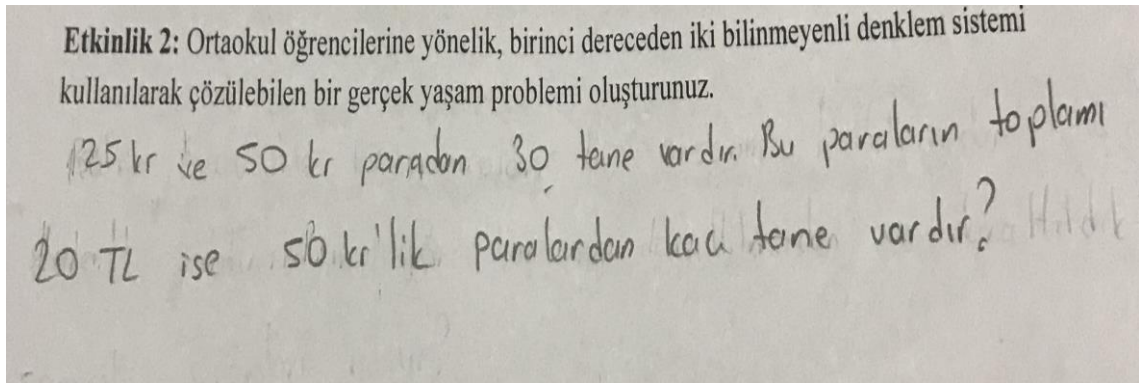 Etkinlik 2: Ortaokul öğrencilerine yönelik, birinci dereceden iki bilinmeyenli denklem sistemi
kullanılarak çözülebilen bir gerçek yaşam problemi oluşturunuz.
25 kr ve 50 kr paradan 30 tane vardır. Bu paraların toplamı
20 TL ise 50 kr'lik paralardan kaç tane vardır?